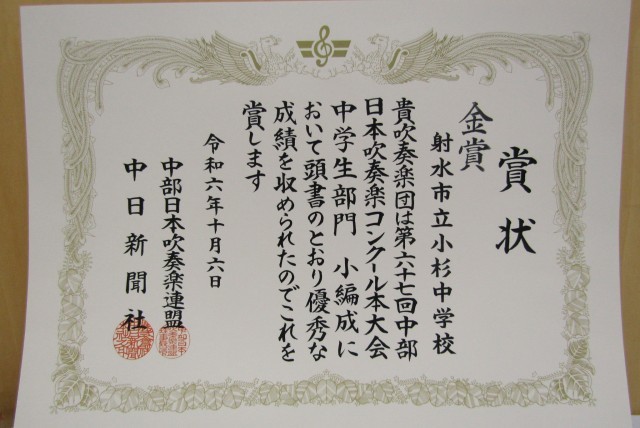 賞状
金賞
射水市立小杉中学校
貴吹奏楽団は第六十七回中部
日本吹奏楽コンクール本大会
中学生部門 小編成に
おいて頭書のとおり優秀な
成績を収められたのでこれを
賞します
令和六年十月六日
中部日本吹奏楽連盟
中日新聞社